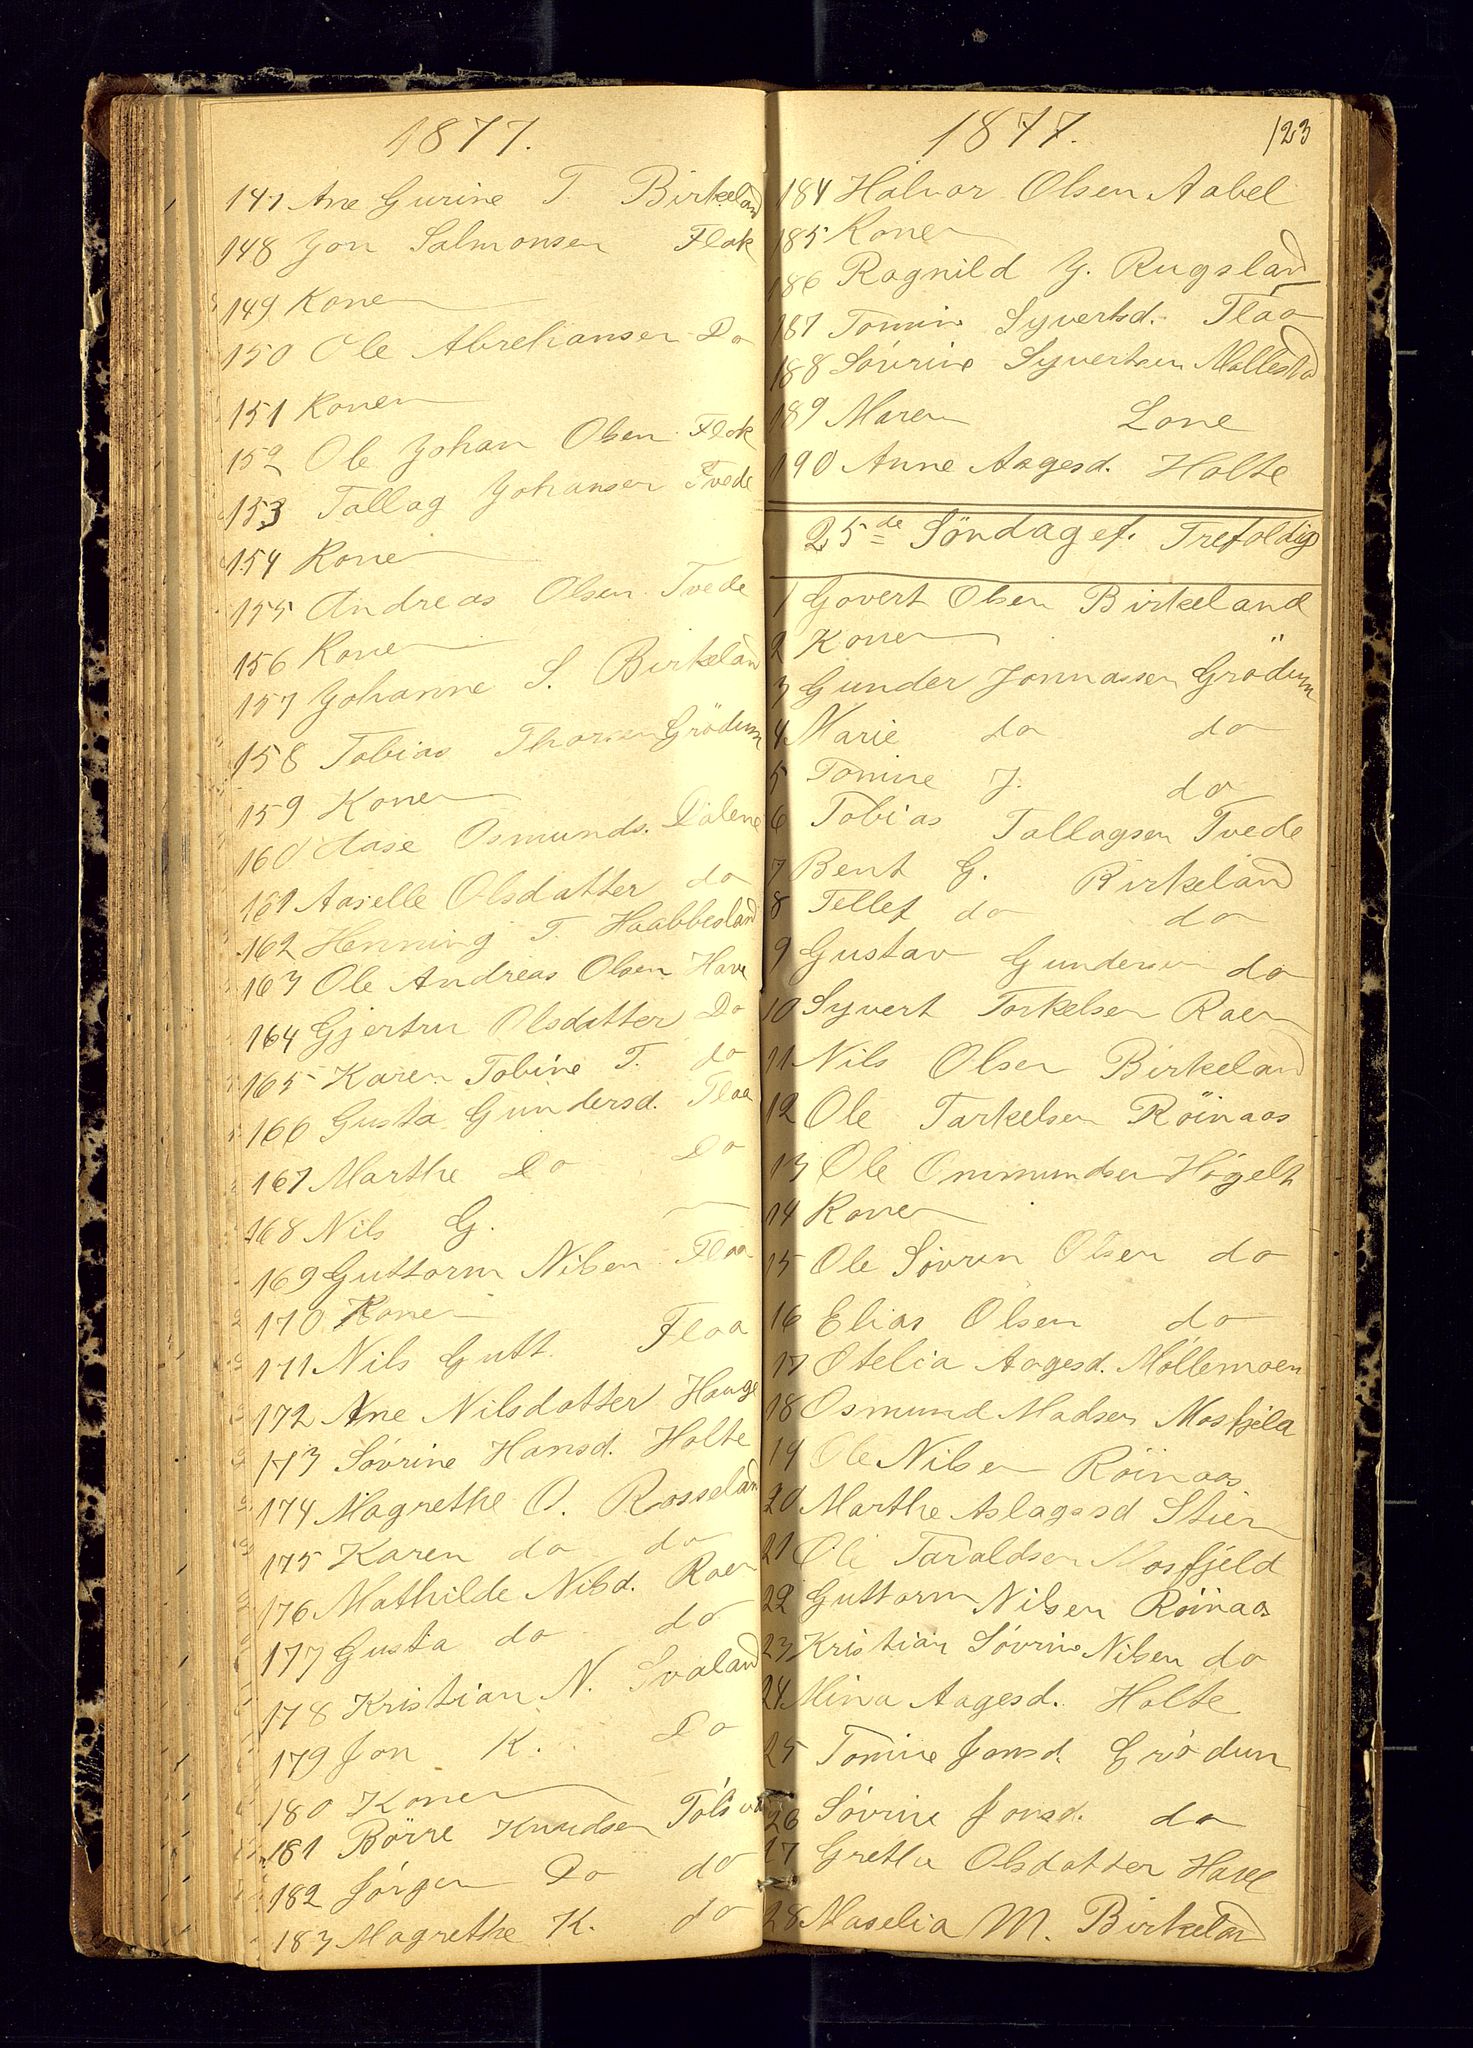 1877.
147 Ane Gurine T. Birkeland
148 Jon Salmonsen Flak
149 Konen
150 Ole Abrehansen Do
151 Konen
152 Ole Johan Olsen Flak
153 Tallag Johansen Tvede
154 Konen
155 Andreas Olsen Tvede
156 Konen
157 Johanne S. Birkeland
158 Tobias Thorsen Grödum
159 Konen
160 Aase Osmunds. Dalene
161 Aaselle Olsdatter do
162 Henning T. Haabbesland
163 Ole Andreas Olsen Have
164 Gjertru Olsdatter Do
165 Karen Tobine T. do
166 Gusta Gundersd. Flaa
167 Marthe Do Do
168 Nils G.
169 Guttorm Nilsen Flaa
170 Konen
171 Nils Gutt. Flaa
172 Ane Nilsdatter Hauge
173 Søvrine Hansd. Holte
174 Magrethe O. Rosseland
175 Karen do do
176 Mathilde Nilsd. Raen
177 Gusta do do
178 Kristian N. Svaland
179 Jon K. Do
180 Konen
181 Börre Knudsen
182 Jørgen Do do
183 Magrethe K. do
1877. 123
184 Halvor Olsen Aabel
185 Konen
186 Ragnild J. Rugsland
187 Tomine Syvertsd. Flaa
188 Søvrine Syvertsen Mollestad
189 Maren Lone
190 Anne Aagesd. Holte
25de Söndag ef. Trefoldig
1 Govert Olsen Birkeland
2 Konen
3 Gunder Jonnassen Grödum
4 Marie do do
5 Tomine J. do
6 Tobias Tallagsen Tvede
7 Bent G. Birkeland
8 Tellef do do
9 Gustav Gundersen do
10 Syvert Torkelsen Raen
11 Nils Olsen Birkeland
12 Ole Tarkelsen Röinaas
13 Ole Ommundsen Högelt
14 Konen
15 Ole Søvrin Olsen do
16 Elias Olsen do
17 Otelia Aagesd. Möllemoen
18 Osmund Madsen Mosfjeld
19 Ole Nilsen Röinaas
20 Marthe Aslagsd Stien
21 Ole Taraldsen Mosfjeld
22 Guttorm Nilsen Röinaas
23 Kristian Søvrine Nilsen do
24 Mina Aagesd. Holte
25 Tomine Jonsd. Grödum
26 Søvrine Jonsd. do
27 Grethe Olsdatter Have
28 Maselia M. Birkeland